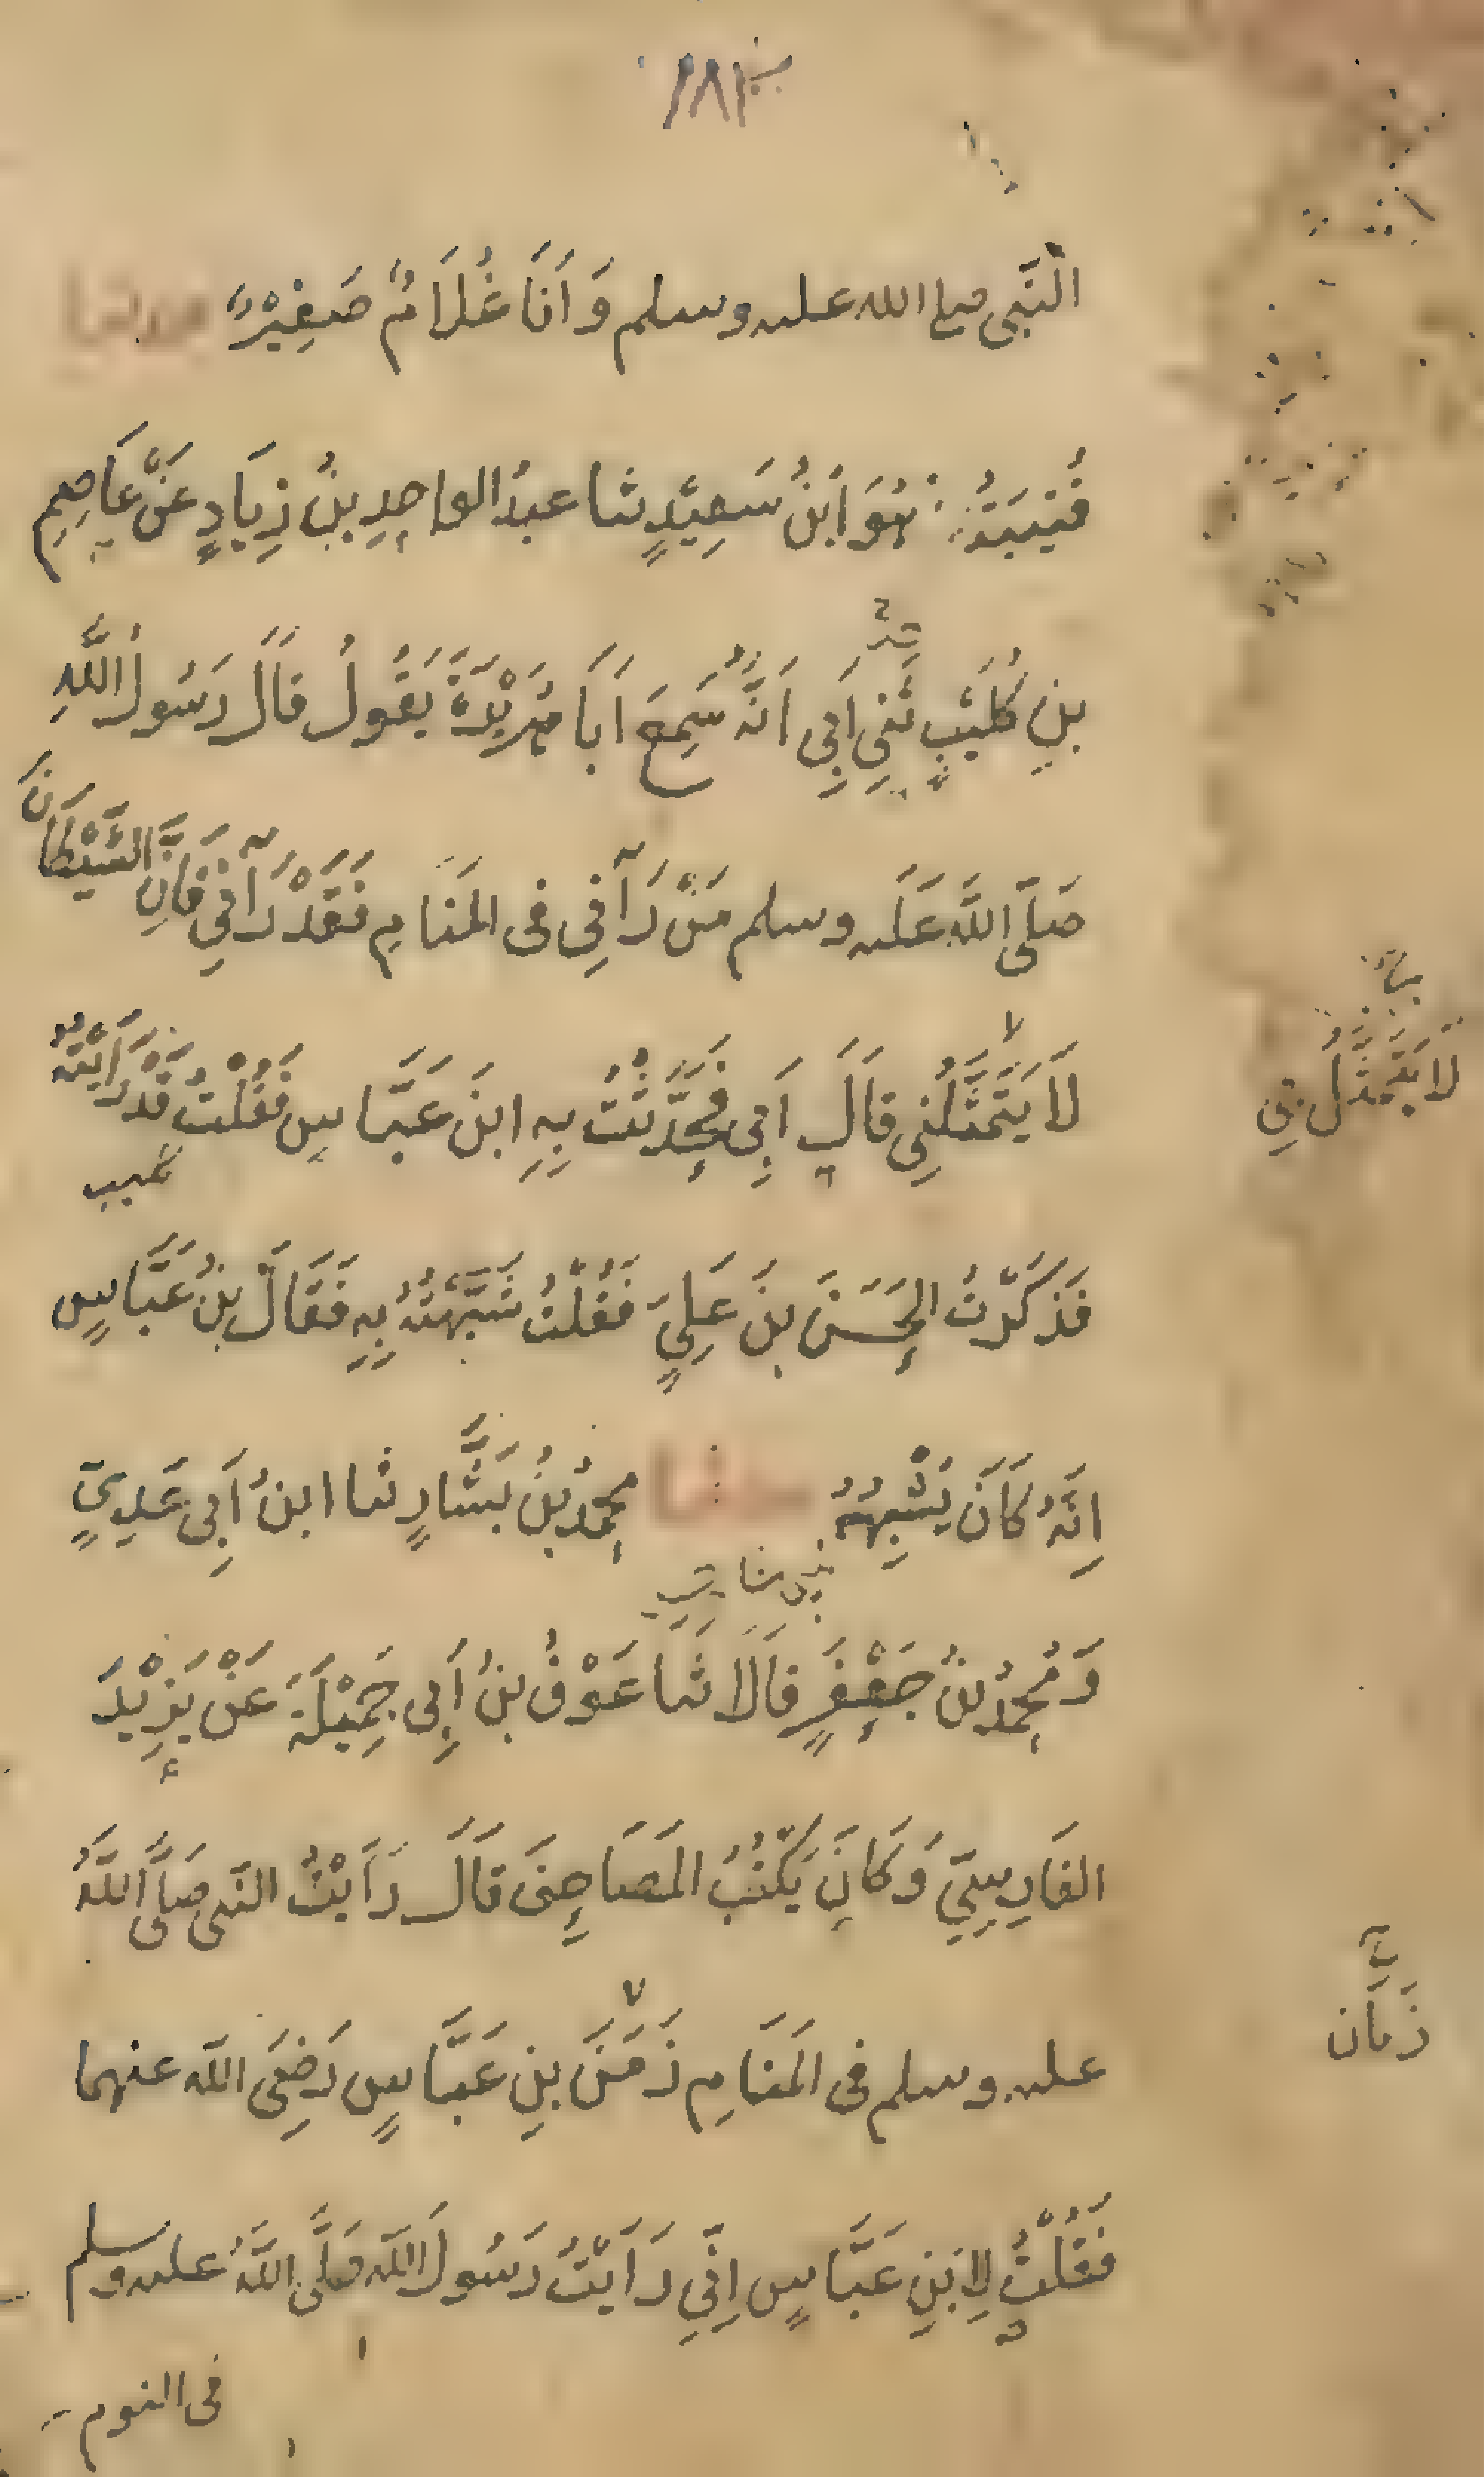 ١٨١
النَّبِى صلى الله عليه وسلم وَ اَنَا غُلَامٌ صَغِيْرٌ حدثنا
قُتَيْبَةُ هُوَ ابْنُ سَعِيْدٍ ثنا عبدُ الواحِدِ بنُ زِيَادٍ عَنْ عَاصِمِ
بنِ كُلَيْبٍ ثَنِى اَبِى اَنَّهُ سَمِعَ اَبَا هُرَيْرَةَ يَقُولُ قَالَ رَسُولُ اللَّهِ
صَلَّى اللَّهُ عَلَيه وسلم مَنْ رَآنِى فى المَنَامِ فَقَدْ رَآنِي فَاِنَّ الشَّيْطَانَ
لَا يَتَمَثَّلُنِى قَالَ اَبِى فَحَدَّثْتُ بِهِ ابنَ عَبَّاسٍ فَقُلْتُ قَدْ رَاَيْتُهُ
لَا يَتَمَثَّلُ بِى
فَذَكَرْتُ الحَسَنَ بنَ عَلِيٍّ فَقُلْتُ شَبَّهْتُهُ بِهِ فَقَالَ بنُ عَبَّاسٍ
اِنَّهُ كَانَ يُشْبِهُهُ حدثنا محمدُ بنُ بَشَّارٍ ثنا ابنُ اَبِى عَدِيٍّ
وَ مُحمدُ بنُ جَعْفَرٍ قَالَا ثَنَا عَوْفُ بنُ اَبِى جَمِيْلَةَ عَنْ يَزِيْدَ
الفَارِسِيِّ وَ كَانَ يَكْتُبُ المَصَاحِفَ قَالَ رَاَيْتُ النَّبى صَلَّى اللَّهُ
عليه وسلم فى المَنَامِ زَمَنَ بنِ عَبَّاسٍ رَضِىَ الله عنهما
زَمَان
فَقُلْتُ لِابنِ عَبَّاسٍ اِنِّي رَاَيْتُ رَسُولَ اللَّه صَلَّى اللَّهُ عليه وسلم
فى النوم